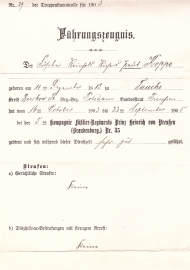 Nr. 29 der Truppenstammrolle für 190
Führungszeugnis.
Der Füsilier Koppe
geboren am 11ten 18 zu Tauche
Kreis Reg.-Bez. Potsdam Bundesstaat Preußen
hat vom October 1903 bis September 1905
bei der 8ten Kompagnie Füsilier-Regiments Prinz Heinrich von Preussen
(Brandenburg.) Nr. 35
gedient und sich während dieser Dienstzeit sehr gut geführt.
Strafen:
a) Gerichtliche Strafen:
Keine
b) Disziplinar-Bestrafungen mit strengem Arrest:
Keine